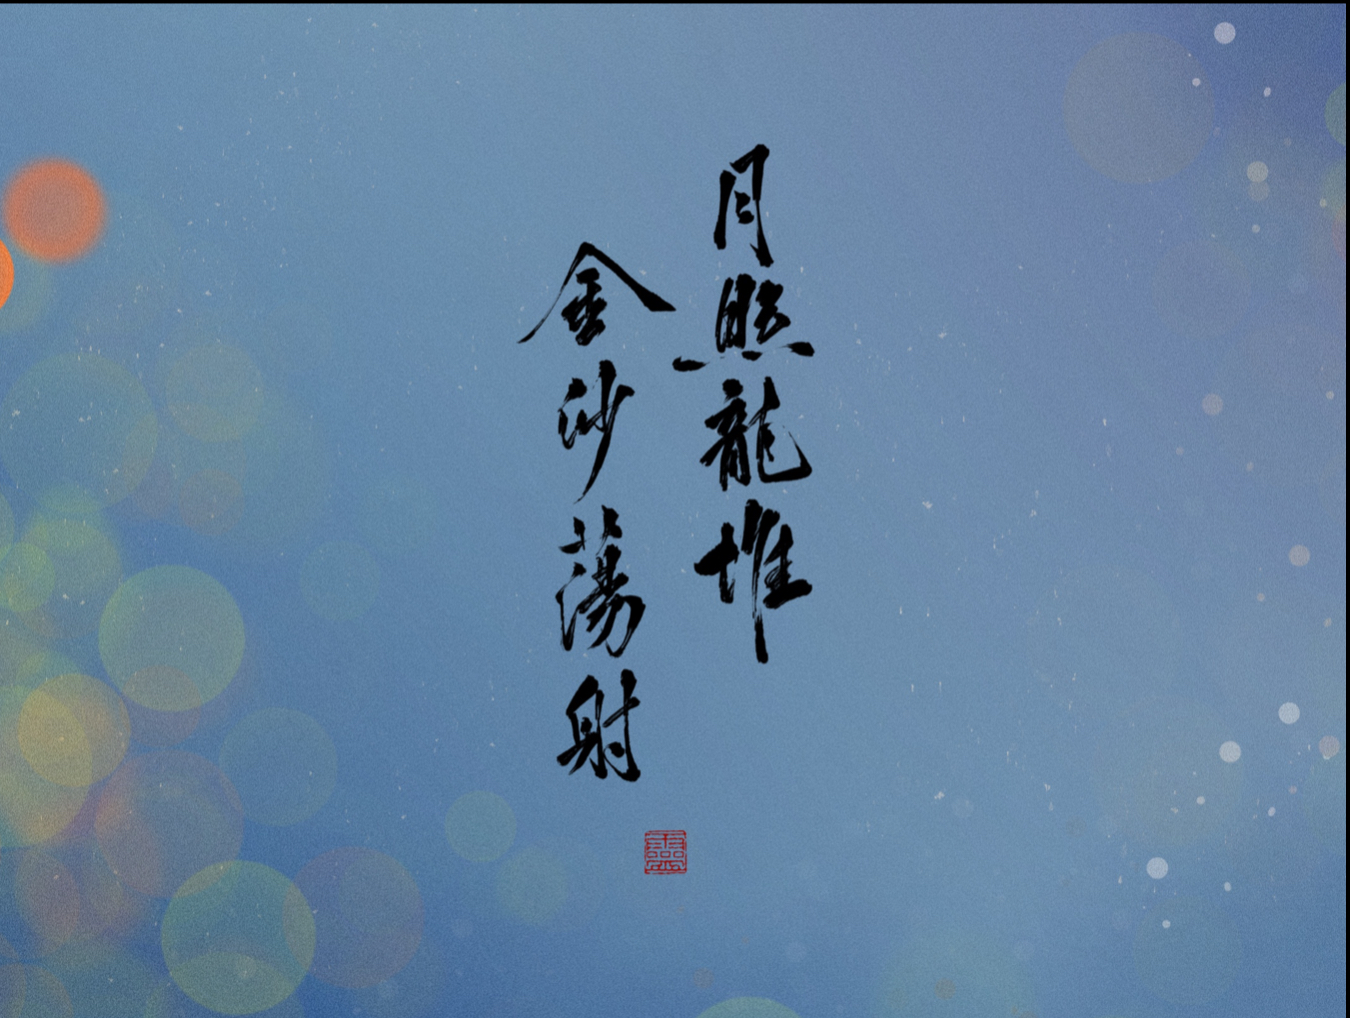 月照龍堆
金沙蕩射
靈